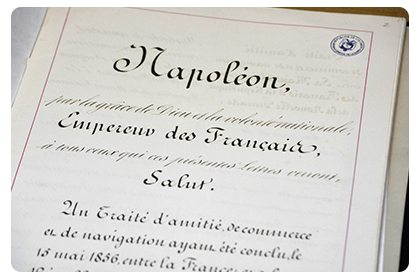 Napoléon,
par la grâce de Dieu et la volonté nationale,
Empereur des Français,
à tous ceux qui ces présentes Lettres verront,
Salut.
Un Traité d'amitié, de commerce
et de navigation ayant été conclu, le
15 mai 1856, entre la France